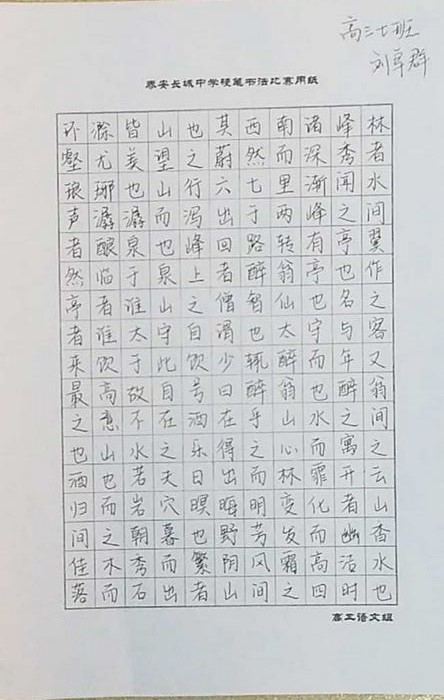 高三七班
刘卓群
泰安长城中学硬笔书法比赛用纸
环滁皆山也其西南诸峰林
壑尤美望之蔚然而深秀者
琅琊也山行六七里渐闻水
声潺潺而泻出于两峰之间
者酿泉也峰回路转有亭翼
然临于泉上者醉翁亭也作
亭者谁山之僧智仙也名之
者谁太守自谓也太守与客
来饮于此饮少辄醉而年又
最高故自号曰醉翁也醉翁
之意不在酒在乎山水之间
也山水之乐得之心而寓之
酒也若夫日出而林霏开云
归而岩穴暝晦明变化者山
间之朝暮也野芳发而幽香
佳木秀而繁阴风霜高洁水
落而石出者山间之四时也
高三语文组